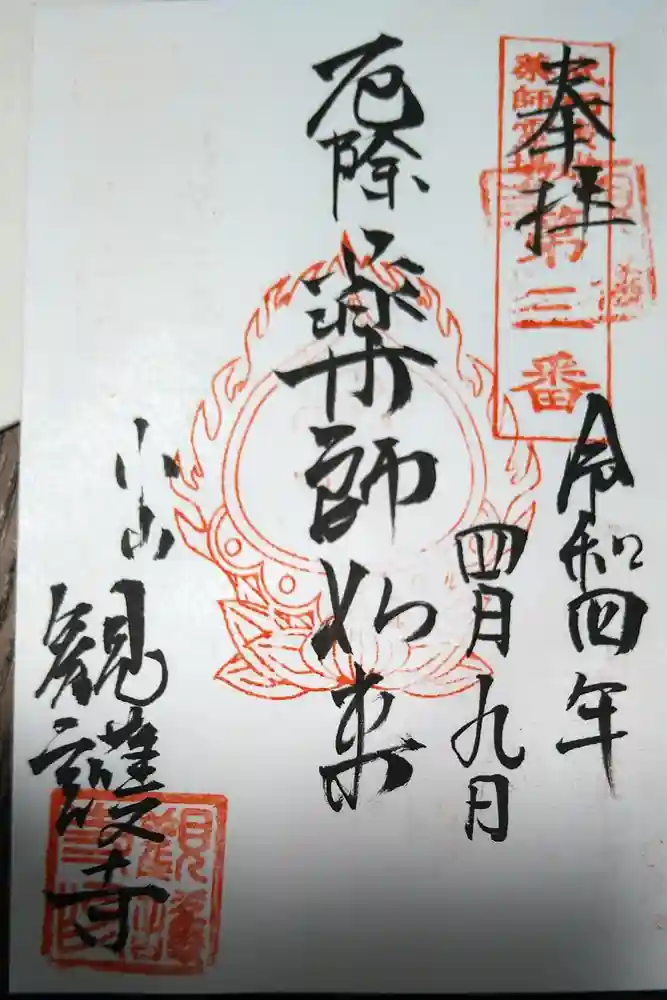 奉拝
第三番
令和四年
四月九日
厄除
薬師如来
小山
観護寺